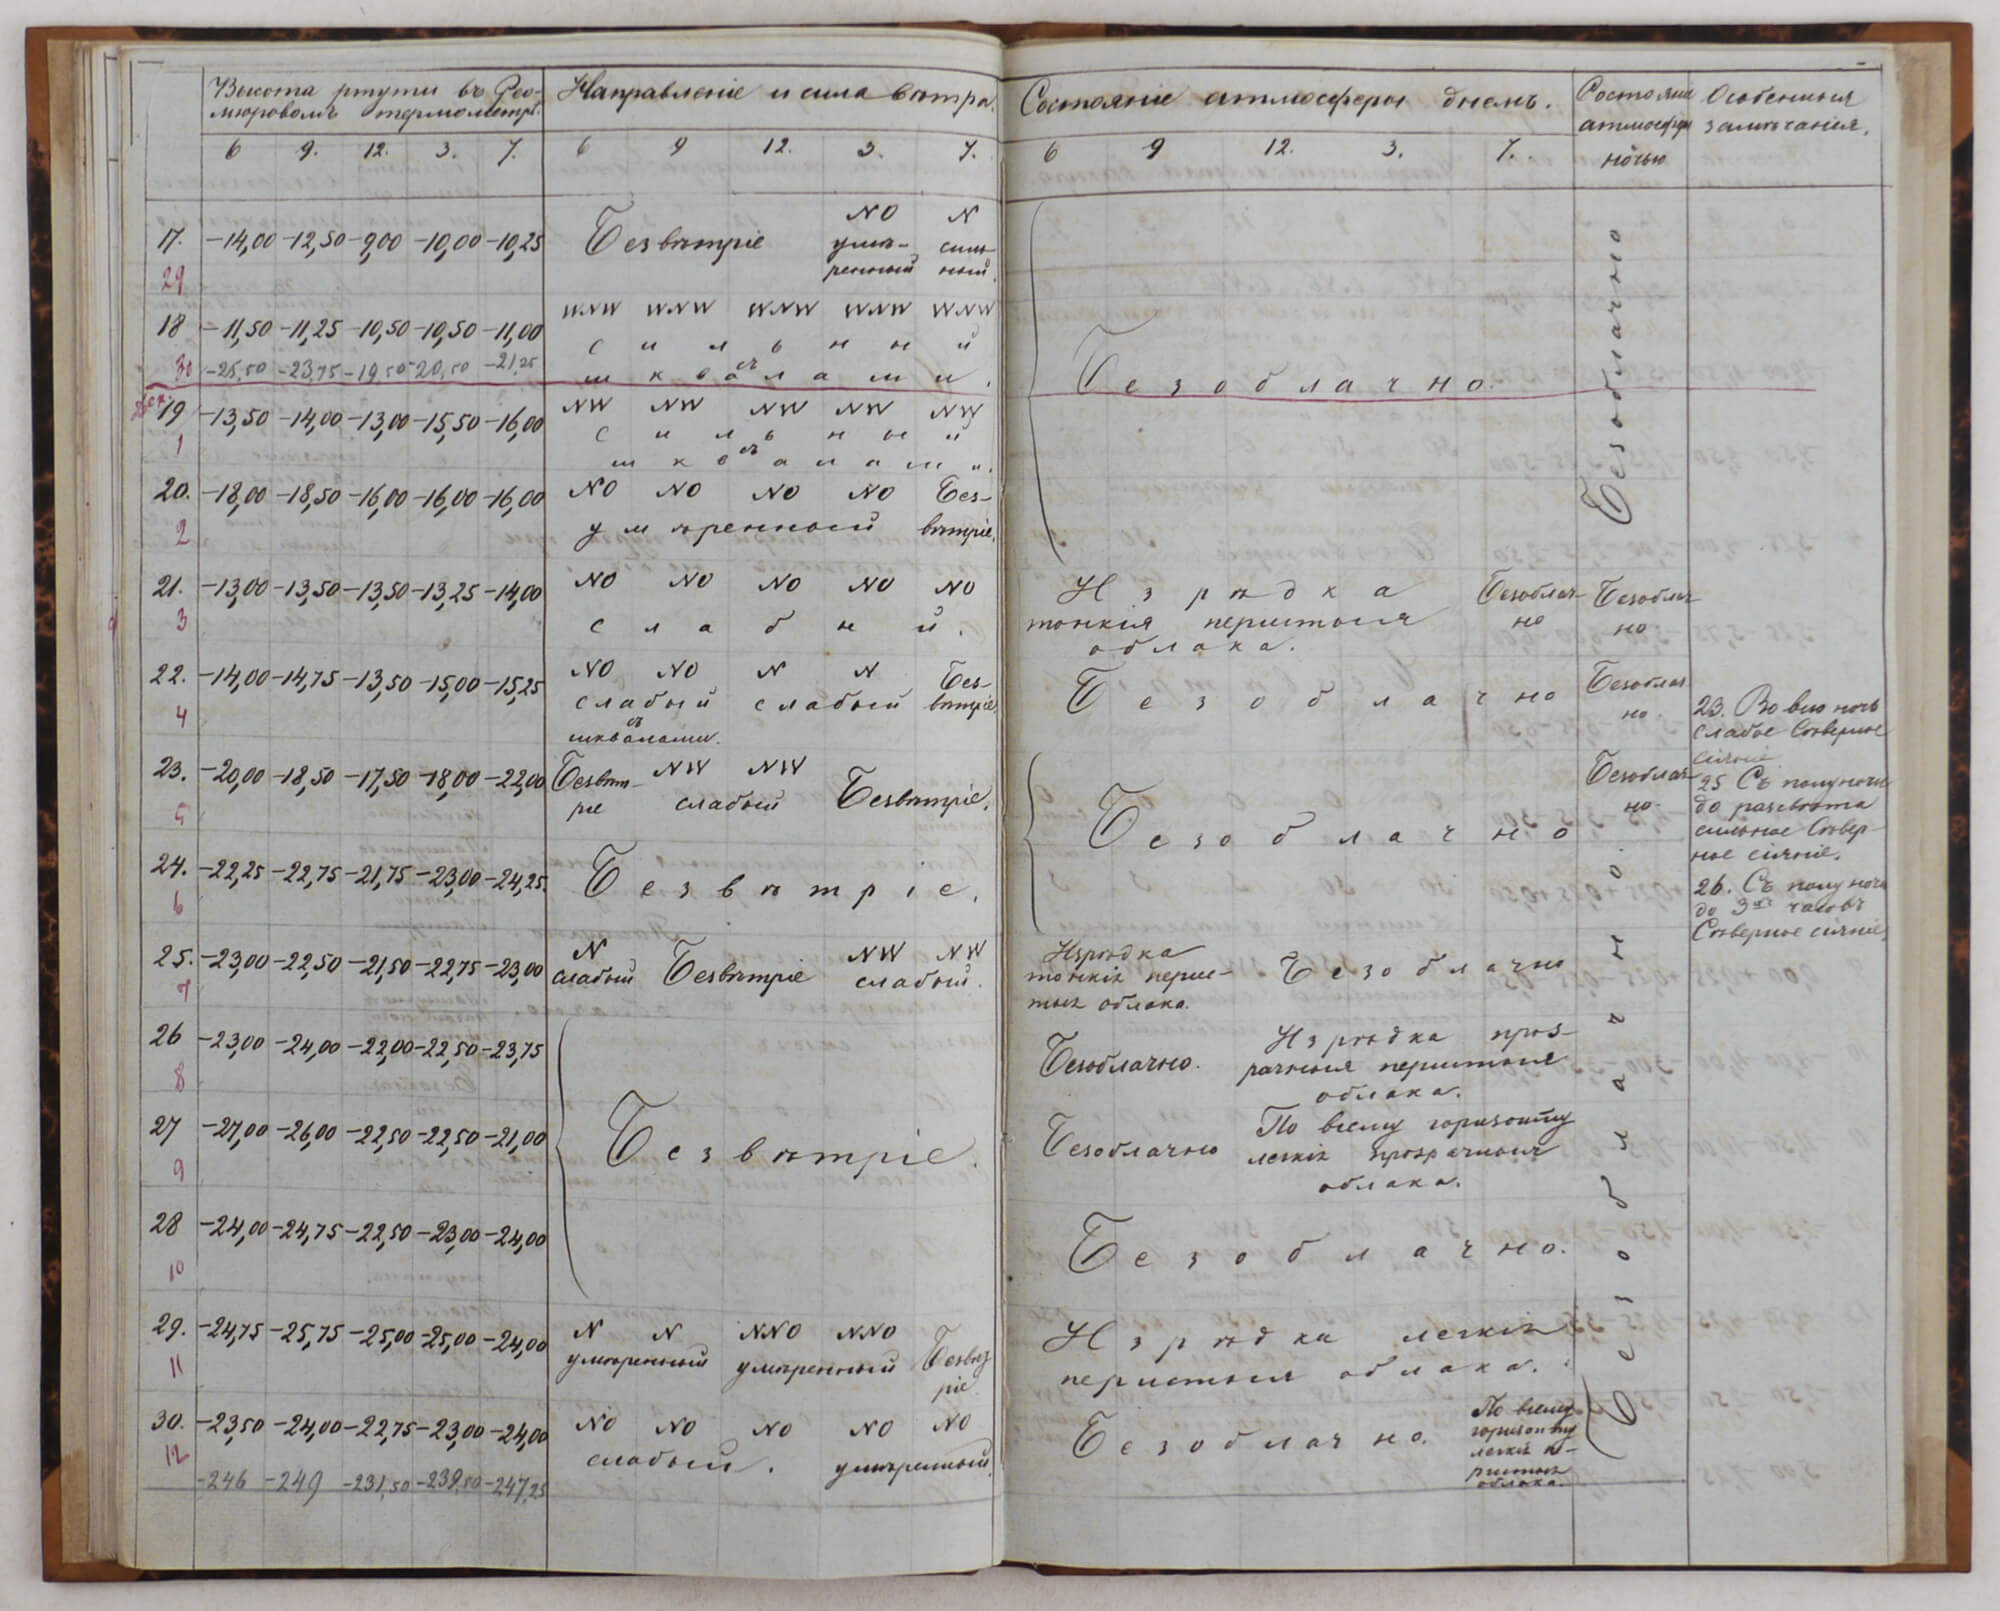 Высота ртути въ Рео-
мюровомъ термометрѣ.
6 9. 12. 3. 7.
Направленіе и сила вѣтра.
6 9 12. 3. 7.
Состояніе атмосферы днемъ.
6 9 12. 3. 7.
Состояніе
атмосферы
ночью
Особенныя
замѣчанія.
17. -14,00 -12,50 -9,00 -10,00 -10,25
29
Безвѣтріе
NO N
умѣ- силь-
ренный ный.
18 -11,50 -11,25 -10,50 -10,50 -11,00
30 -25,50 -23,75 -19,50 -20,50 -21,25
WNW WNW WNW WNW WNW
сильный
съ
шквалами.
Дек.
19 -13,50 -14,00 -13,00 -15,50 -16,00
1
NW NW NW NW NW
сильный
съ
шквалами.
20. -18,00 -18,50 -16,00 -16,00 -16,00
2
NO NO NO NO Без-
умѣренный вѣтріе.
Безоблачно.
Безоблачно
21. -13,00 -13,50 -13,50 -13,25 -14,00
3
NO NO NO NO NO
слабый.
Изрѣдка Безоблач- Безоблач-
тонкія перистыя но но.
облака.
22. -14,00 -14,75 -13,50 -15,00 -15,25
4
NO NO N N Без-
слабый слабый вѣтріе.
съ
шквалами.
Безоблачно
Безоблач-
но.
23. Во всю ночь
слабое Сѣверное
сіяніе
23. -20,00 -18,50 -17,50 -18,00 -22,00
5
Безвѣт- NW NW
ріе слабый Безвѣтріе.
Безоблачно
Безоблач-
но.
25 Съ полуночи
до разсвѣта
сильное Сѣвер-
ное сіяніе.
24. -22,25 -22,75 -21,75 -23,00 -24,25.
6
Безвѣтріе.
26. Съ полуночи
до 3хъ часовъ
Сѣверное сіяніе.
25. -23,00 -22,50 -21,50 -22,75 -23,00
7
N NW NW
слабый Безвѣтріе слабый.
Изрѣдка
тонкія перис- Безоблачно
тыя облака.
26 -23,00 -24,00 -22,00 -22,50 -23,75
8
Безоблачно. Изрѣдка проз-
рачныя перистыя
облака.
27 -27,00 -26,00 -22,50 -22,50 -21,00
9
Безвѣтріе.
Безоблачно По всему горизонту
легкія прозрачныя
облака.
28 -24,00 -24,75 -22,50 -23,00 -24,00
10
Безоблачно.
29. -24,75 -25,75 -25,00 -25,00 -24,00
11
N N NNO NNO
умѣренный умѣренный Безвѣт
ріе
Изрѣдка легкія
перистыя облака.
Безоблачно.
30. -23,50 -24,00 -22,75 -23,00 -24,00
12
NO NO NO NO NO
слабый. умѣренный.
Безоблачно.
По всему
горизонту
легкія пе-
ристыя
облака.
-246 -249 -231,50 -239,50 -247,25